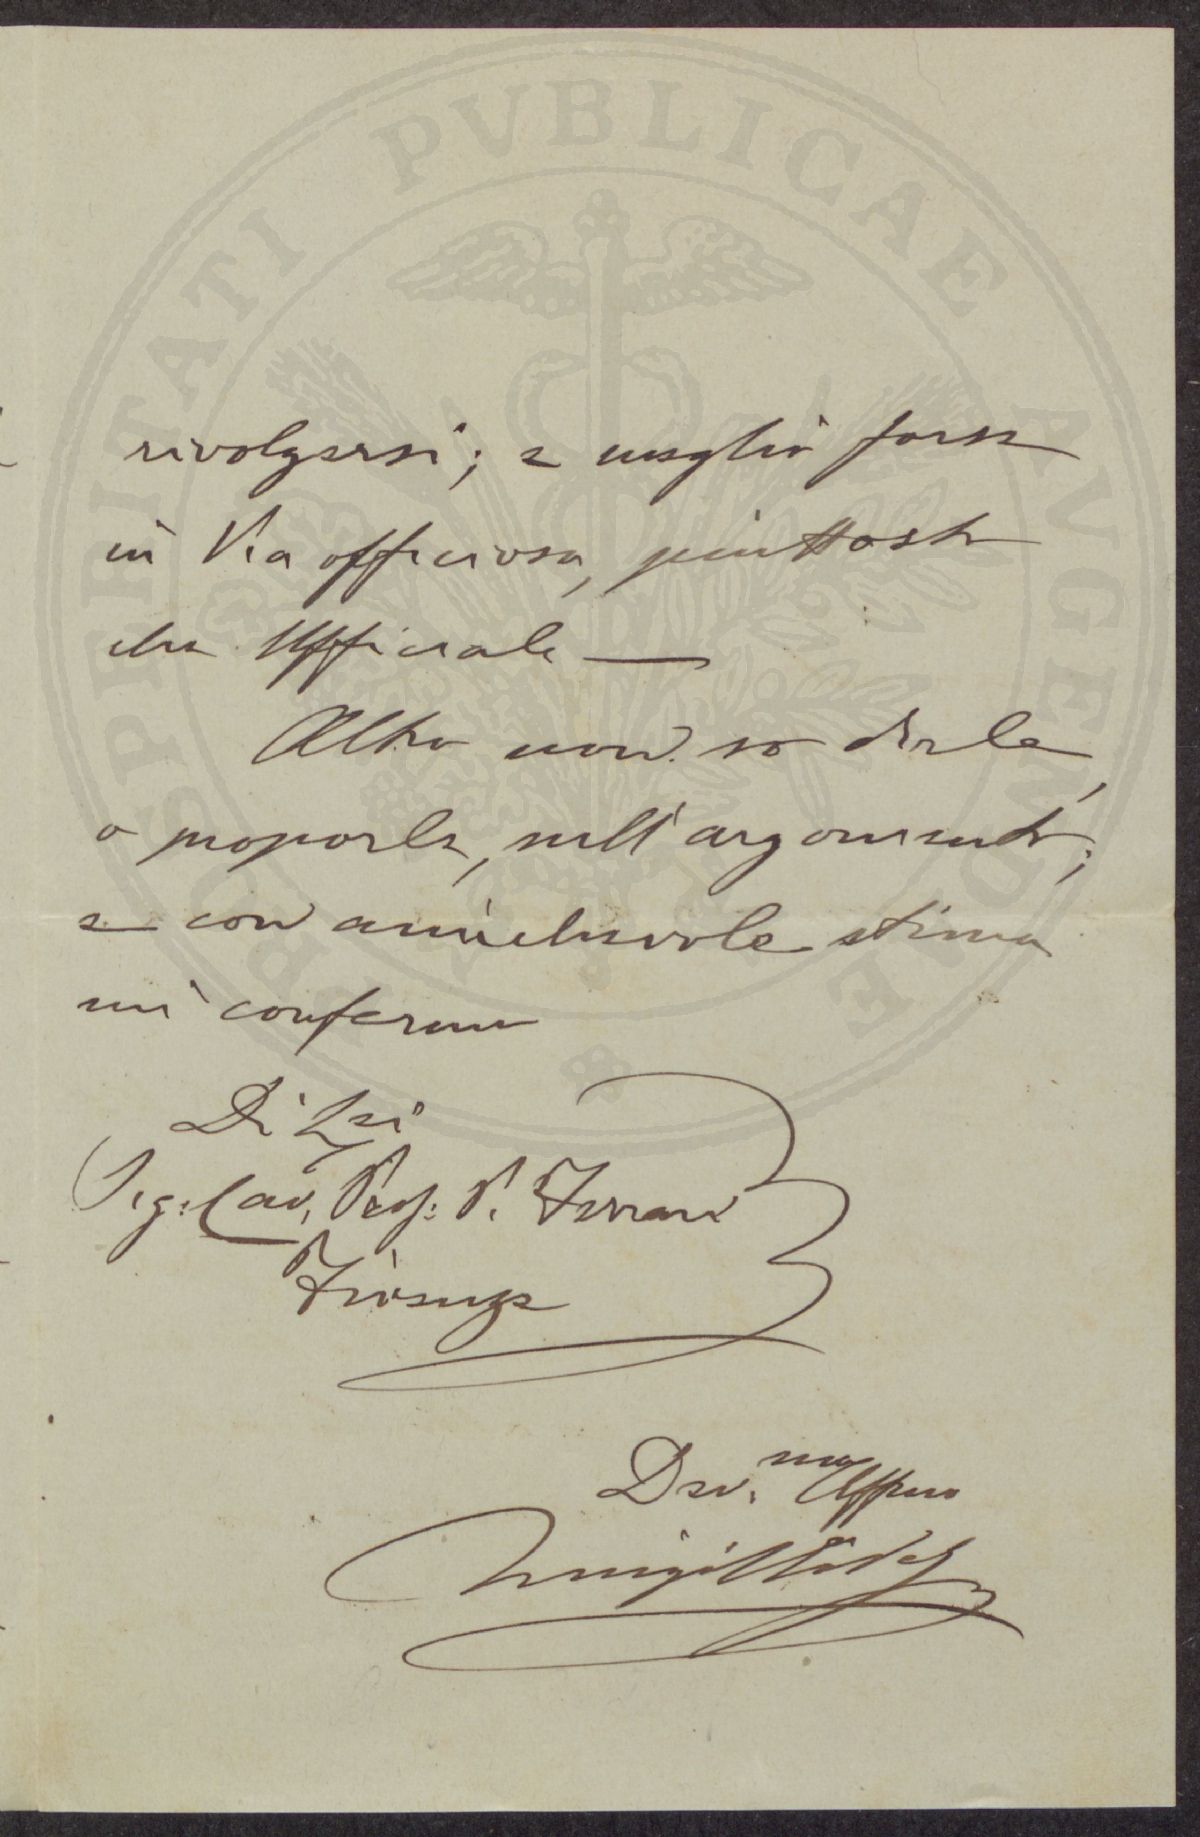 PROSPERITATI PVBLICAE AVGENDAE
rivolgersi; e meglio forse
in Via officiosa, piuttosto
che Ufficiale —
Altro non so dirle,
o proporle, sull'argomento;
e con amichevole stima
mi confermo
Di Lei
Sig: Cav. Prof: P. Ferrari
Firenze
Dev.mo
Luigi